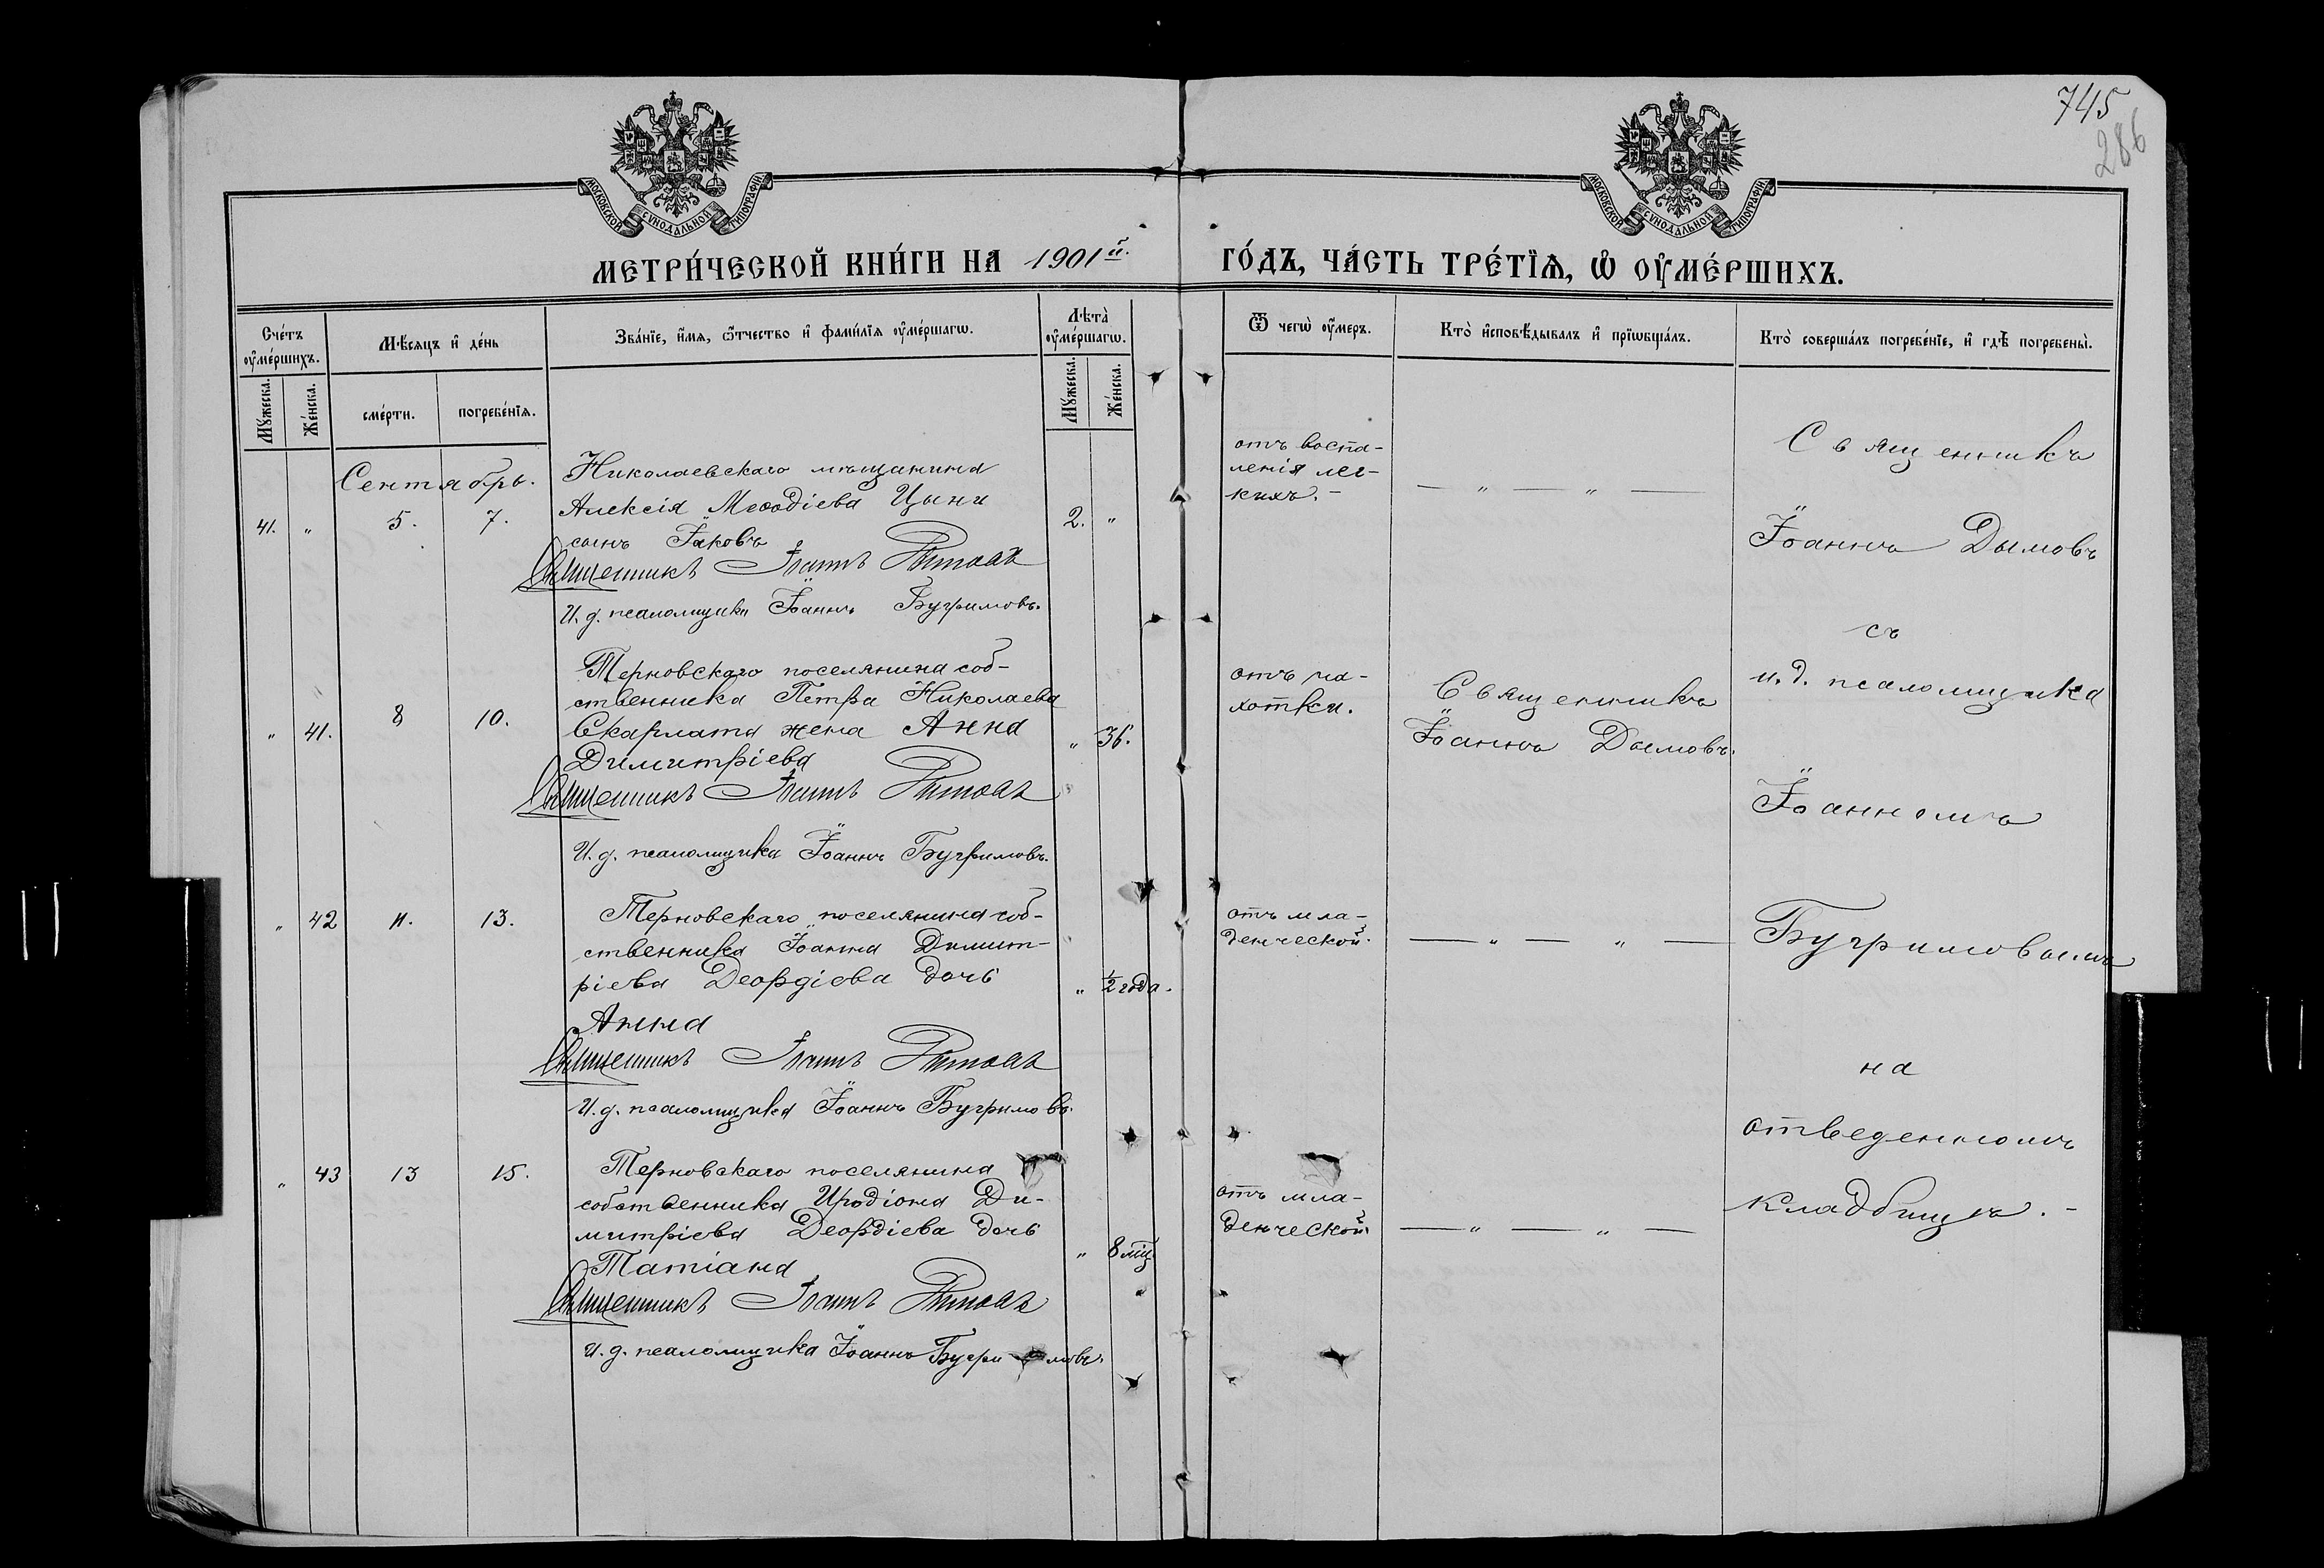 745
286
МОСКОВСКОЙ СѴНОДАЛЬНОЙ ТИПОГРАФІИ
МОСКОВСКОЙ СѴНОДАЛЬНОЙ ТИПОГРАФІИ
МЕТРИ́ЧЕСКОЙ КНИ́ГИ НА 1901й. ГО́ДЪ, ЧА́СТЬ ТРЕ́ТЇѦ, Ѡ҆ ОУ҆МЕ́РШИХЪ.
Сче́тъ
оу҆ме́ршихъ.
Мꙋ́жеска.
Же́нска.
Мѣ́сяцъ и҆ де́нь
сме́рти.
погребе́нїѧ.
Зва́нїе, и҆́мя, ѻ҆́тчество и҆ фами́лїѧ оу҆ме́ршагѡ.
Лѣ́та̀
оу҆ме́ршагѡ.
Мꙋ́жеска.
Же́нска.
Ѿ чегѡ̀ оу҆́меръ.
Кто̀ и҆сповѣ́дывалъ и҆ прїѡбща́лъ.
Кто̀ соверша́лъ погребе́нїе, и҆ гдѣ̀ погребены̀.
Сентябрь.
41. " 5. 7.
Николаевскаго мѣщанина
Алексія Меѳодіева Цыни
сынъ Іаковъ
2. "
отъ воспа-
ленія лег-
кихъ. -
— " — " —
Священникъ Іоаннъ Дымовъ
И. д. псаломщика Іоаннъ Бугримовъ.
" 41. 8 10.
Терновскаго поселянина соб-
ственника Петра Николаева
Скарлата жена Анна
Димитріева
" 36.
отъ ча-
хотки.
Священникъ
Іоаннъ Дымовъ.
Священникъ Іоаннъ Дымовъ
И. д. псаломщика Іоаннъ Бугримовъ.
" 42 11. 13.
Терновскаго поселянина соб-
ственника Іоанна Димит-
ріева Деордіева дочь
Анна
" ½ года.
отъ мла-
денческой.
— " — " —
Священникъ Іоаннъ Дымовъ
И. д. псаломщика Іоаннъ Бугримовъ.
" 43 13 15.
Терновскаго поселянина
собственника Иродіона Ди-
митріева Деордіева дочь
Татіана
" 8 мц.
отъ мла-
денческой.
— " — " —
Священникъ Іоаннъ Дымовъ
И. д. псаломщика Іоаннъ Бугримовъ.
Священникъ
Іоаннъ Дымовъ
съ
и. д. псаломщика
Іоанномъ
Бугримовымъ
на
отведенномъ
кладбищѣ. -